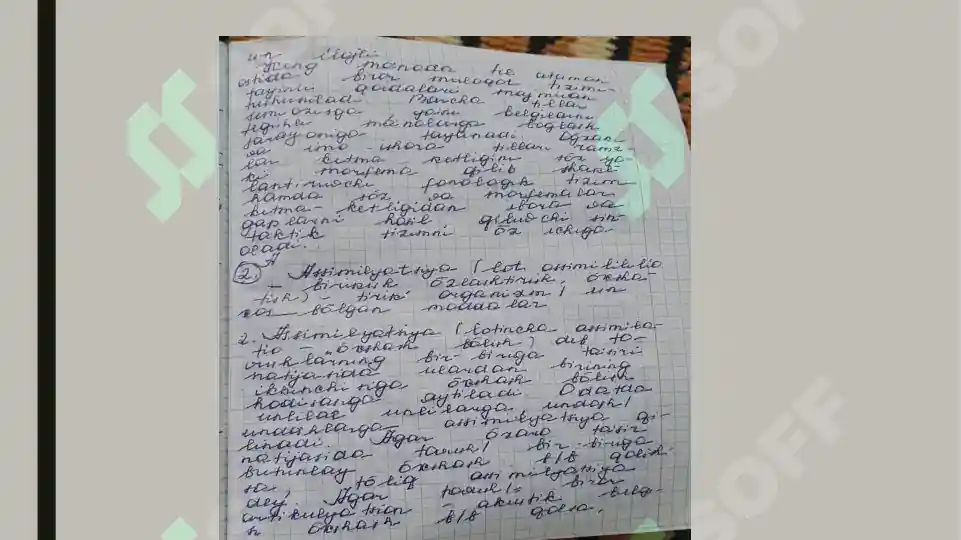 un ilojli
Keng ma'noda bu atama
ostida biror muloqot tizimi-
tayinli qoidalari majmuasi
tushuniladi. Barcha tillar
simioziga ya'ni belgilarni
tegishli ma'nolarga boglash
jarayoniga tayanadi. Ogzaki
va imo-ishora tillari ramz-
lar ketma-ketligini soz yo-
ki morfema qilib shakl-
lantiruvchi fonologik tizim
hamda soz va morfemalar
ketma-ketligidan ibora va
gaplarni hosil qiluvchi sin-
taktik tizimni oz ichiga
oladi.
2. Assimilyatsiya (lot. assimilitio
- birikish ozlashtirish, oxsha-
tish) - tirik organizm/ un
xos bolgan moddalar
2. Assimilyatsiya (lotincha assimila-
tio - oxshash bolish) deb to-
vushlarning bir-biriga ta'siri
natijasida ulardan birining
ikkinchisiga oxshash bolish
hodisasiga aytiladi. Odatda
unlilar unlilarga undosh/
undoshlarga assimilyatsiya qi-
linadi. Agar ozaro ta'sir
natijasida tovush/ bir-biriga
butunlay oxshash b/b qolish-
sa, toliq assimilyatsiya
dey. Agar tovush/ biror
artikulyatsion - akustik belgi-
si oxshash b/b qolsa,
SOFF